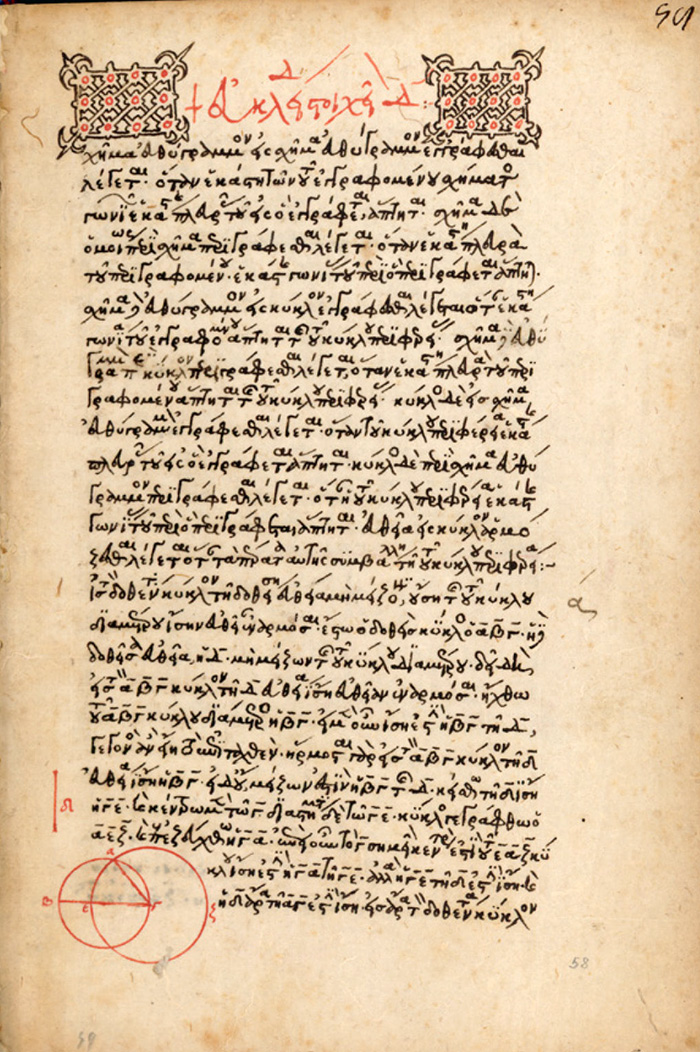 χῆμα εὐθύγραμμον εἰς σχῆμα εὐθύγραμμον ἐγγράφεσθαι
λέγεται· ὅταν ἑκάστη τῶν τοῦ ἐγγραφομένου σχήματος
γωνιῶν ἑκάστης πλευρᾶς τοῦ εἰς ὃ ἐγγράφεται ἅπτηται· σχῆμα δὲ
ὁμοίως περὶ σχῆμα περιγράφεσθαι λέγεται· ὅταν ἑκάστη πλευρὰ
τοῦ περιγραφομένου ἑκάστης γωνίας τοῦ περὶ ὃ περιγράφεται ἅπτηται·
σχῆμα εὐθύγραμμον εἰς κύκλον ἐγγράφεσθαι λέγεται ὅταν ἑκάστη
γωνία τοῦ ἐγγραφομένου ἅπτηται τῆς τοῦ κύκλου περιφερείας· σχῆμα εὐθύ
γραμμον περὶ κύκλον περιγράφεσθαι λέγεται, ὅταν ἑκάστη πλευρὰ τοῦ περι
γραφομένου ἅπτηται τῆς τοῦ κύκλου περιφερείας· κύκλος δὲ εἰς σχῆμα
εὐθύγραμμον ἐγγράφεσθαι λέγεται· ὅταν ἡ τοῦ κύκλου περιφέρεια ἑκάστης
πλευρᾶς τοῦ εἰς ὃ ἐγγράφεται ἅπτηται· κύκλος δὲ περὶ σχῆμα εὐθύ
γραμμον περιγράφεσθαι λέγεται· ὅταν ἡ τοῦ κύκλου περιφέρεια ἑκάστης
γωνίας τοῦ περὶ ὃ περιγράφεται ἅπτηται· εὐθεῖα εἰς κύκλον ἐναρμό
ζεσθαι λέγεται ὅταν τὰ πέρατα αὐτῆς συμβάλλῃ τῇ τοῦ κύκλου περιφερείᾳ:~
εἰς τὸν δοθέντα κύκλον τῇ δοθείσῃ εὐθείᾳ μὴ μείζονι οὔσῃ τῆς τοῦ κύκλου
διαμέτρου ἴσην εὐθεῖαν ἐναρμόσαι· ἔστω ὁ δοθεὶς κύκλος ὁ ΑΒΓ· ἡ δὲ
δοθεῖσα εὐθεῖα, ἡ Δ· μὴ μείζων τῆς τοῦ κύκλου διαμέτρου· δεῖ δὴ
εἰς τὸν ΑΒΓ κύκλον τῇ Δ εὐθείᾳ ἴσην εὐθεῖαν ἐναρμόσαι· ἤχθω
τοῦ ΑΒΓ κύκλου διάμετρος ἡ ΒΓ· εἰ μὲν οὖν ἴση ἐστὶν ἡ ΒΓ τῇ Δ,
γεγονὸς ἂν εἴη τὸ ἐπιταχθέν· ἐνήρμοσται γὰρ εἰς τὸν ΑΒΓ κύκλον τῇ Δ
εὐθείᾳ ἴση ἡ ΒΓ· εἰ δὲ οὔ, μείζων ἐστὶν ἡ ΒΓ τῆς Δ· κείσθω τῇ Δ ἴση
ἡ ΓΕ· καὶ κέντρῳ μὲν τῷ Γ διαστήματι δὲ τῷ ΓΕ· κύκλος γεγράφθω ὁ
ΑΕΖ· καὶ ἐπεζεύχθω ἡ ΓΑ· ἐπεὶ οὖν τὸ Γ σημεῖον κέντρον ἐστὶ τοῦ ΕΑΖ κύ
κλου ἴση ἐστὶν ἡ ΓΑ τῇ ΓΕ· ἀλλὰ ἡ ΓΕ τῇ Δ ἐστὶν ἴση· καὶ
ἡ Δ ἄρα τῇ ΑΓ ἐστὶν ἴση· εἰς ἄρα τὸν δοθέντα κύκλον
Α
Β Ε Γ Ζ
Δ
α
58